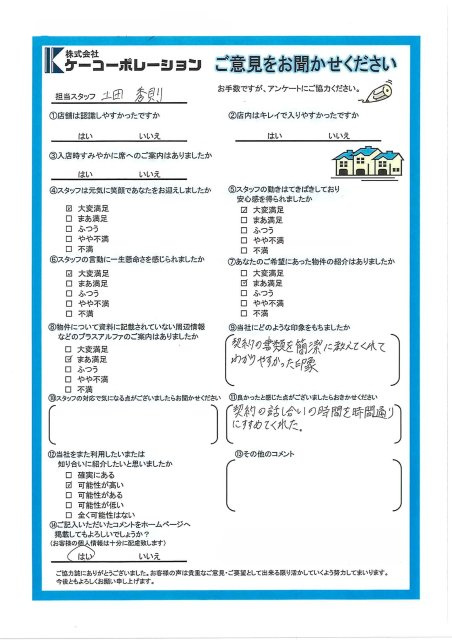 株式会社
ケーコーポレーション
ご意見をお聞かせください
担当スタッフ 土田 秀則
お手数ですが、アンケートにご協力ください。
①店舗は認識しやすかったですか
はい いいえ
②店内はキレイで入りやすかったですか
はい いいえ
③入店時すみやかに席へのご案内はありましたか
はい いいえ
④スタッフは元気に笑顔であなたをお迎えしましたか
☑ 大変満足
□ まあ満足
□ ふつう
□ やや不満
□ 不満
⑤スタッフの動きはてきぱきしており
安心感を得られましたか
☑ 大変満足
□ まあ満足
□ ふつう
□ やや不満
□ 不満
⑥スタッフの言動に一生懸命さを感じられましたか
☑ 大変満足
□ まあ満足
□ ふつう
□ やや不満
□ 不満
⑦あなたのご希望にあった物件の紹介はありましたか
□ 大変満足
☑ まあ満足
□ ふつう
□ やや不満
□ 不満
⑧物件について資料に記載されていない周辺情報
などのプラスアルファのご案内はありましたか
□ 大変満足
☑ まあ満足
□ ふつう
□ やや不満
□ 不満
⑨当社にどのような印象をもちましたか
契約の書類を簡潔に教えてくれて
わかりやすかった印象
⑩スタッフの対応で気になる点がございましたらお聞かせください
⑪良かったと感じた点がございましたらおきかせください
契約の話し合いの時間を時間通り
にすすめてくれた。
⑫当社をまた利用したいまたは
知り合いに紹介したいと思いましたか
□ 確実にある
☑ 可能性が高い
□ 可能性がある
□ 可能性が低い
□ 全く可能性はない
⑬その他のコメント
⑭ご記入いただいたコメントをホームページへ
掲載してもよろしいでしょうか?
(お客様の個人情報は十分に配慮致します)
はい いいえ
ご協力誠にありがとうございました。お客様の声は貴重なご意見・ご要望として出来る限り活かしていくよう努力してまいります。
今後ともよろしくお願い申し上げます。